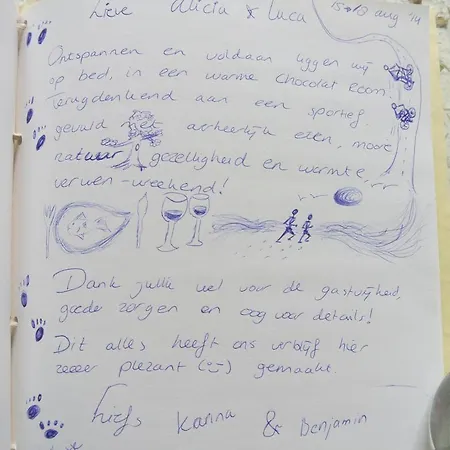 Lieve Alicia & Luca 15→17 aug '14
Ontspannen en voldaan liggen wij
op bed, in een warme Chocolat room.
Terugdenkend aan een sportief
gevuld met overheerlijk eten, mooie
natuur, gezelligheid en warmte,
verwen-weekend!
Dank jullie wel voor de gastvrijheid,
goede zorgen en oog voor details!
Dit alles heeft ons verblijf hier
zeeer plezant (☺) gemaakt.
liefs Karina & Benjamin